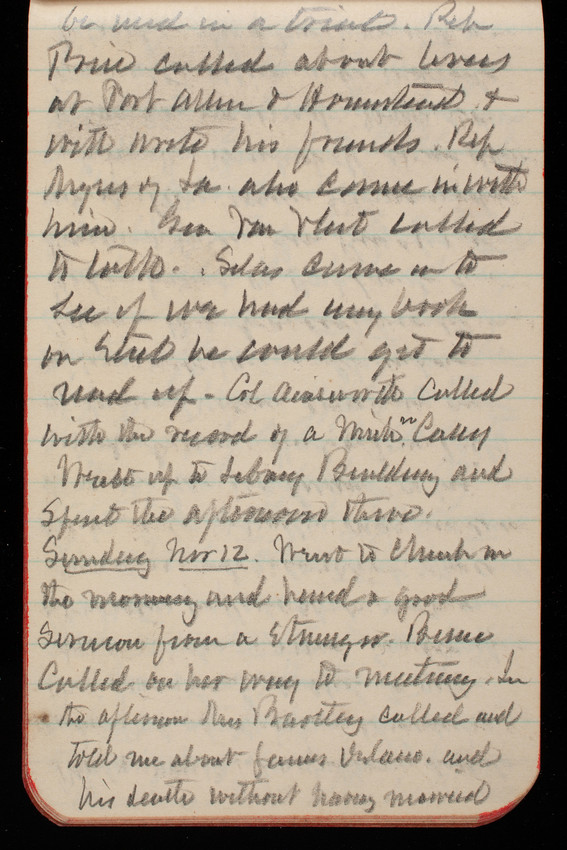 be used in a trial. Rep
Price called about levees
at Port Allen & Homestead &
with wrote his friends. Rep
of La. also came in with
him. Gen Van Vliet called
to talk. Silas came in to
see if we had any book
on Steel he could get to
read up. Col Ainsworth called
with the record of a Mich'n Cavy
Went up to Library Building and
spent the afternoon there.
Sunday Nov 12. Went to Church in
the morning and heard a good
Sermon from a Stranger.
Called on her way to meeting. In
the afternoon Mrs called and
told me about and
his death without having married